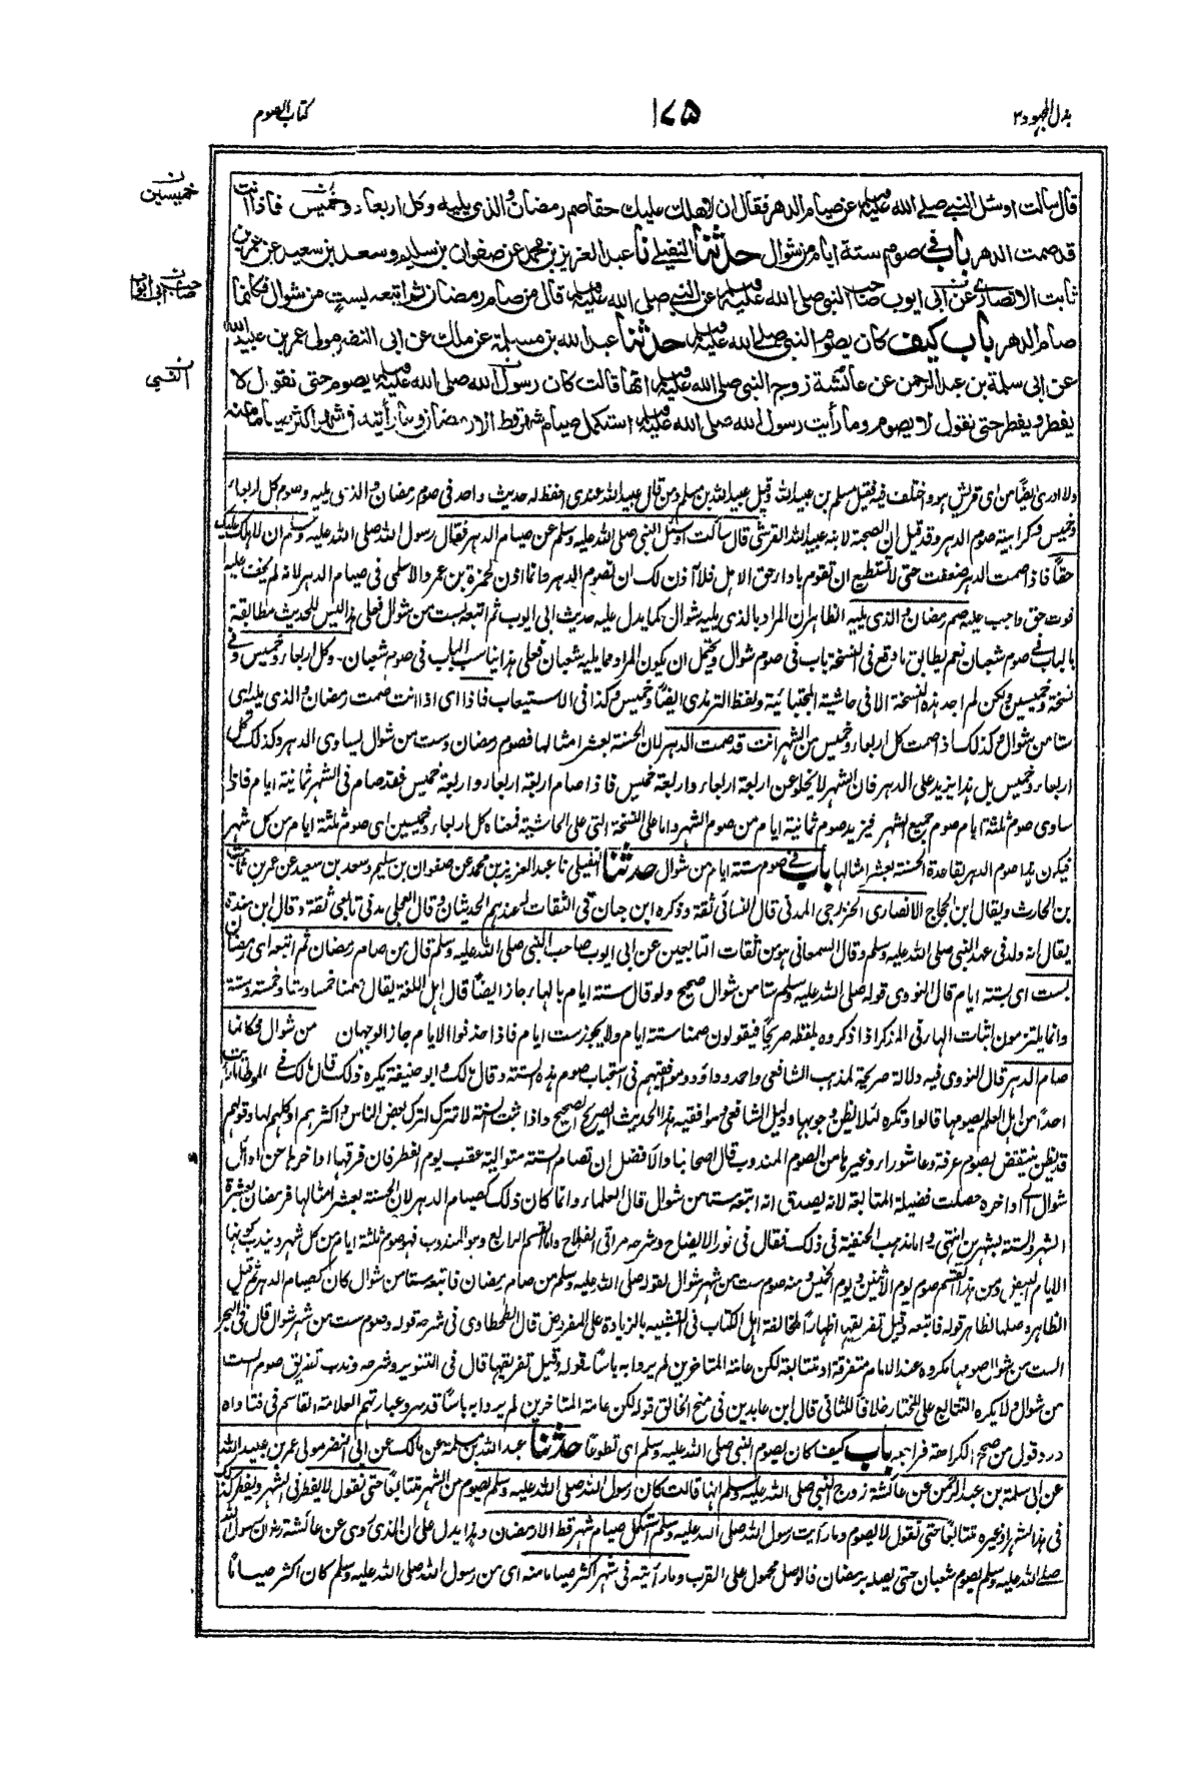 بذل المجهود ٣
١٧٥
كتاب الصوم
قال سألت او سئل النبي صلى الله عليه وسلم عن صيام الدهر فقال ان لاهلك عليك حقا صم رمضان والذي يليه وكل اربعاء وخميس فاذا انت
قد صمت الدهر باب في صوم ستة ايام من شوال حدثنا النفيلي نا عبد العزيز بن محمد عن صفوان بن سليم وسعد بن سعيد عن عمر بن
ثابت الانصاري عن ابي ايوب صاحب النبي صلى الله عليه وسلم عن النبي صلى الله عليه وسلم قال من صام رمضان ثم اتبعه بست من شوال فكانما
صام الدهر باب كيف كان يصوم النبي صلى الله عليه وسلم حدثنا عبد الله بن مسلمة عن ملك عن ابي النضر مولى عمر بن عبيد الله
عن ابي سلمة بن عبد الرحمن عن عائشة زوج النبي صلى الله عليه وسلم انها قالت كان رسول الله صلى الله عليه وسلم يصوم حتى نقول لا
يفطر ويفطر حتى نقول لا يصوم وما رأيت رسول الله صلى الله عليه وسلم استكمل صيام شهر قط الا رمضان وما رأيته في شهر اكثر صياما منه
خميسين
صاحب ابي ايوب
النبي
ولا ادري ايضا من اي قريش هو واختلف فيه فقيل مسلم بن عبيد الله وقيل عبيد الله بن مسلم ومن قال عبيد الله عندي احفظ له حديث واحد في صوم رمضان والذي يليه وصوم كل اربعاء
وخميس وكراهية صوم الدهر وقد قيل ان الصحبة لابنه عبيد الله القرشي قال سألت او سئل النبي صلى الله عليه وسلم عن صيام الدهر فقال رسول الله صلى الله عليه وسلم ان لاهلك عليك
حقا فاذا صمت الدهر ضعفت حتى لا تستطيع ان تقوم باداء حق الاهل فلا آذن لك ان تصوم الدهر وانما اذن لحمزة بن عمرو الاسلمي في صيام الدهر لانه لم يخف عليه
فوت حق واجب عليه صم رمضان والذي يليه الظاهر ان المراد بالذي يليه شوال كما يدل عليه حديث ابي ايوب ثم اتبعه بست من شوال فعلى هذا ليس للحديث مطابقة
بالباب في صوم شعبان نعم يطابق ما وقع في النسخة باب في صوم شوال ويحتمل ان يكون المراد مما يليه شعبان فعلى هذا يناسب الباب في صوم شعبان - وكل اربعاء وخميس وفي
نسخة وخميسين ولكن لم اجد هذه النسخة الا في حاشية المجتبائية ولفظ الترمذي ايضا وخميس وكذا في الاستيعاب فاذا اي اذا انت صمت رمضان والذي يليه اي
ستا من شوال وكذلك اذا صمت كل اربعاء وخميس من الشهر انت قد صمت الدهر لان الحسنة بعشر امثالها فصوم رمضان وست من شوال يساوي الدهر وكذلك كل
اربعاء وخميس بل هذا يزيد على الدهر فان الشهر لا يخلو عن اربعة اربعاء واربعة خميس فاذا صام اربعة اربعاء واربعة خميس فقد صام في الشهر ثمانية ايام فاذا
ساوى صوم ثلثة ايام صوم جميع الشهر فيزيد صوم ثمانية ايام من صوم الشهر واما على النسخة التي على الحاشية فمعناه كل اربعاء وخميسين اي صوم ثلثة ايام من كل شهر
فيكون هذا صوم الدهر بقاعدة الحسنة بعشر امثالها باب في صوم ستة ايام من شوال حدثنا النفيلي نا عبد العزيز بن محمد عن صفوان بن سليم وسعد بن سعيد عن عمر بن ثابت
بن الحارث ويقال ابن الحجاج الانصاري الخزرجي المدني قال النسائي ثقة وذكره ابن حبان في الثقات له عندهم الحديثان وقال العجلي مدني تابعي ثقة وقال ابن مندة
يقال انه ولد في عهد النبي صلى الله عليه وسلم وقال السمعاني هو من ثقات التابعين عن ابي ايوب صاحب النبي صلى الله عليه وسلم قال من صام رمضان ثم اتبعه اي رمضان
بست اي بستة ايام قال النووي قوله صلى الله عليه وسلم ستا من شوال صحيح ولو قال ستة ايام بالهاء جاز ايضا قال اهل اللغة يقال صمنا خمسا وستا وخمسة وستة
وانما يلتزمون اثبات الهاء في المذكر اذا ذكروه بلفظه صريحا فيقولون صمنا ستة ايام ولا يجوز ست ايام فاذا حذفوا الايام جاز الوجهان من شوال فكانما
صام الدهر قال النووي فيه دلالة صريحة لمذهب الشافعي واحمد وداؤد وموافقيهم في استحباب صوم هذه الستة وقال مالك وابو حنيفة يكره ذلك قال مالك في الموطا ما رايت
احدا من اهل العلم يصومها قالوا وتكره لئلا يظن وجوبها ودليل الشافعي وموافقيه هذا الحديث الصحيح الصريح واذا ثبت السنة لا تترك لترك بعض الناس او اكثرهم او كلهم لها وقولهم
قد يظن ينتقض بصوم عرفة وعاشوراء وغيرهما من الصوم المندوب قال اصحابنا والافضل ان تصام الستة متوالية عقب يوم الفطر فان فرقها او اخرها عن اوائل
شوال الى اواخره حصلت فضيلة المتابعة لانه يصدق انه اتبعه ستا من شوال قال العلماء وانما كان ذلك كصيام الدهر لان الحسنة بعشر امثالها فرمضان بعشرة
اشهر والستة بشهرين انتهى واما مذهب الحنفية في ذلك فقال في نور الايضاح وشرحه مراقي الفلاح واما القسم الرابع وهو المندوب فهو صوم ثلثة ايام من كل شهر ويندب كونها
الايام البيض ومن هذا القسم صوم يوم الاثنين ويوم الخميس ومنه صوم ست من شهر شوال لقوله صلى الله عليه وسلم من صام رمضان فاتبعه ستا من شوال كان كصيام الدهر ثم قيل
الظاهر وصلها لظاهر قوله فاتبعه وقيل تفريقها اظهارا لمخالفة اهل الكتاب في التشبيه بالزيادة على المفروض قال الطحطاوي في شرحه قوله وصوم ست من شهر شوال قال في البحر
الست من شوال صومها مكروه عند الامام متفرقة او متتابعة لكن عامة المتاخرين لم يروا به باسا قوله وقيل تفريقها قال في التنوير وشرحه وندب تفريق صوم الست
من شوال ولا يكره التتابع على المختار خلافا للثاني قال ابن عابدين في منح الخالق قوله لكن عامة المتاخرين لم يروا به باسا قد سرد عبارتهم العلامة القاسم في فتاواه
ورد قول من صحح الكراهة فراجعه باب كيف كان يصوم النبي صلى الله عليه وسلم اي تطوعا حدثنا عبد الله بن مسلمة عن مالك عن ابي النضر مولى عمر بن عبيد الله
عن ابي سلمة بن عبد الرحمن عن عائشة زوج النبي صلى الله عليه وسلم انها قالت كان رسول الله صلى الله عليه وسلم يصوم من الشهر متتابعا حتى نقول لا يفطر في الشهر ويفطر كذلك
في هذا الشهر او غيره متتابعا حتى نقول لا يصوم وما رأيت رسول الله صلى الله عليه وسلم استكمل صيام شهر قط الا رمضان وهذا يدل على ان الذي روي عن عائشة رض ان رسول الله
صلى الله عليه وسلم يصوم شعبان حتى يصله برمضان فالوصل محمول على القرب وما رأيته في شهر اكثر صياما منه اي من رسول الله صلى الله عليه وسلم كان اكثر صياما